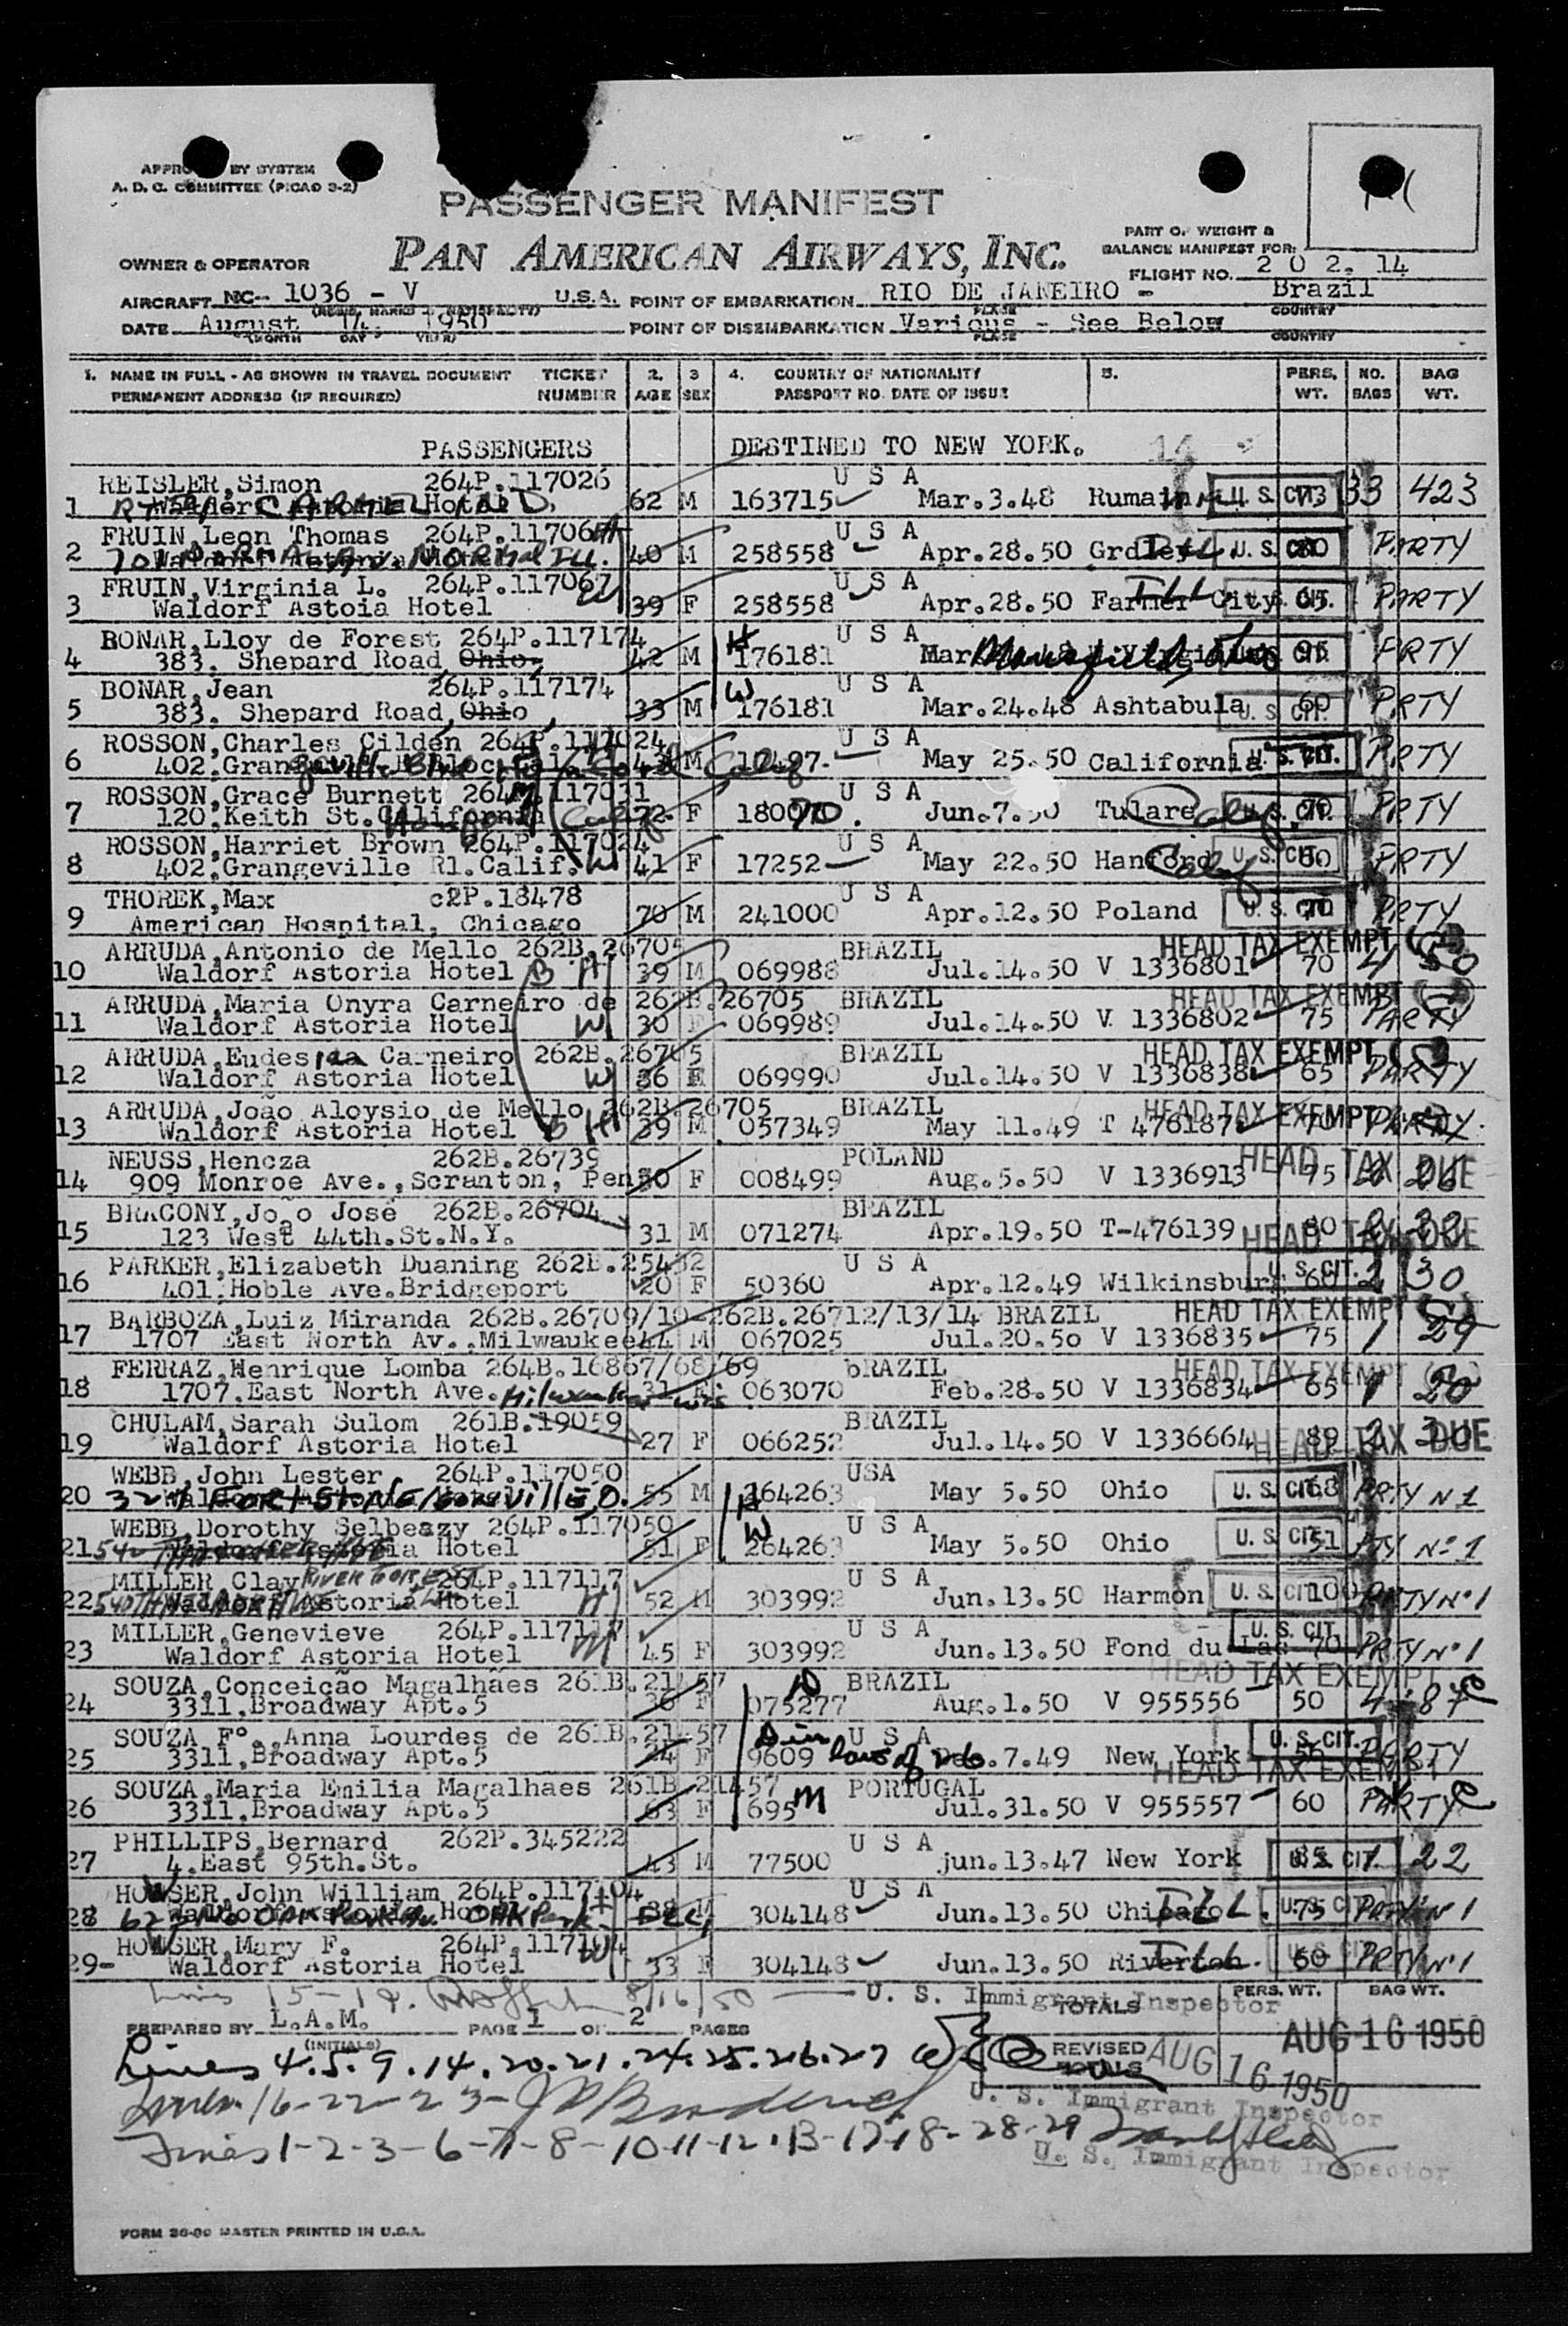 APPRO BY SYSTEM
A. D. C. COMMITTEE (PICAO 3-2)
PASSENGER MANIFEST
PAN AMERICAN AIRWAYS, INC.
PART OF WEIGHT &
BALANCE MANIFEST FOR:
OWNER & OPERATOR
FLIGHT NO. 202. 14
AIRCRAFT NC- 1036 - V U.S.A. POINT OF EMBARKATION RIO DE JANEIRO - Brazil
DATE August 14, 1950 POINT OF DISEMBARKATION Various - See Below
(MONTH DAY YEAR) PLACE COUNTRY
1. NAME IN FULL - AS SHOWN IN TRAVEL DOCUMENT TICKET 2. 3 4. COUNTRY OF NATIONALITY 5. PERS. NO. BAG
PERMANENT ADDRESS (IF REQUIRED) NUMBER AGE SEX PASSPORT NO. DATE OF ISSUE WT. BAGS WT.
PASSENGERS DESTINED TO NEW YORK.
REISLER,Simon 264P.117026 U S A
1 Hotel 62 M 163715 Mar.3.48 U. S. CIT. 33 423
FRUIN,Leon Thomas U S A
2 40 M 258558 Apr.28.50 U. S. CIT. PARTY
FRUIN,Virginia L. 264P.117067 U S A
3 Waldorf Astoia Hotel 39 F 258558 Apr.28.50 Farmer City PARTY
BONAR,Lloy de Forest 264P.117174 H U S A
4 383. Shepard Road Ohio. 42 M 176181 Mansfield, PRTY
BONAR,Jean 264P.117174 W U S A
5 383. Shepard Road,Ohio 33 M 176181 Mar.24.48 Ashtabula U. S. CIT. 60 PRTY
ROSSON,Charles Cilden 264P.117024 U S A
6 402. M May 25.50 California PRTY
ROSSON,Grace Burnett 117031 U S A
7 120.Keith St.California 72 F Tulare PRTY
ROSSON,Harriet Brown 264P.117024 U S A
8 402.Grangeville Rl.Calif. W 41 F 17252 May 22.50 Hanford U. S. CIT. PRTY
THOREK,Max c2P.18478 U S A
9 American Hospital, Chicago 70 M 241000 Apr.12.50 Poland U. S. CIT. PRTY
ARRUDA,Antonio de Mello 262B.26705 BRAZIL HEAD TAX EXEMPT
10 Waldorf Astoria Hotel B H 39 M 069988 Jul.14.50 V 1336801 70 4 50
ARRUDA,Maria Onyra Carneiro de 262B.26705 BRAZIL HEAD TAX EXEMPT
11 Waldorf Astoria Hotel W 30 F 069989 Jul.14.50 V 1336802 75 PARTY
ARRUDA, Carneiro 262B.26705 BRAZIL HEAD TAX EXEMPT
12 Waldorf Astoria Hotel W 36 069990 Jul.14.50 V 1336838 65 PARTY
ARRUDA,João Aloysio de Mello 262B.26705 BRAZIL HEAD TAX EXEMPT
13 Waldorf Astoria Hotel B H 39 M 057349 May 11.49 T PARTY
NEUSS,Hencza 262B.26739 POLAND HEAD TAX DUE
14 909 Monroe Ave.,Scranton, Pen F 008499 Aug.5.50 V 1336913 75
BRACONY,João José 262B.26704 BRAZIL HEAD TAX DUE
15 123 West 44th.St.N.Y. 31 M 071274 Apr.19.50 T-476139 80
PARKER,Elizabeth Duaning U S A U. S. CIT.
16 401.Hoble Ave.Bridgeport 20 F 50360 Apr.12.49 Wilkinsburg 2 30
BARBOZA,Luiz Miranda 262B.26709/10-262B.26712/13/14 BRAZIL HEAD TAX EXEMPT
17 1707 East North Av..Milwaukee 44 M 067025 Jul.20.50 V 1336835 75 1 29
FERRAZ,Henrique Lomba 264B.16867/68/69 bRAZIL HEAD TAX EXEMPT
18 1707.East North Ave. 063070 Feb.28.50 V 1336834 65 1 20
CHULAM,Sarah Sulom 261B.19059 BRAZIL HEAD TAX DUE
19 Waldorf Astoria Hotel 27 F 066252 Jul.14.50 V 1336664 89
WEBB,John Lester 264P.117050 H USA
20 55 M 264263 May 5.50 Ohio U. S. CIT. 68 PRTY N 1
WEBB,Dorothy Selbeazy 264P.117050 W U S A
21 Hotel 51 F 264263 May 5.50 Ohio U. S. CIT. 51 Nº 1
MILLER,Clay 264P.117117 U S A
22 Waldorf Astoria Hotel H 52 M 303992 Jun.13.50 Harmon U. S. CIT. 100 PRTY Nº 1
MILLER,Genevieve U S A
23 Waldorf Astoria Hotel 45 F 303992 Jun.13.50 Fond du Lac U. S. CIT. 70 PRTY Nº 1
SOUZA,Conceição Magalhães 261B.21457 BRAZIL HEAD TAX EXEMPT
24 3311.Broadway Apt.5 36 F 075277 Aug.1.50 V 955556 50 4 87
SOUZA Fº.,Anna Lourdes de 261B.21457 U S A U. S. CIT.
25 3311.Broadway Apt.5 F 9609 7.49 New York PARTY
SOUZA,Maria Emilia Magalhaes 261B.21457 M PORTUGAL HEAD TAX EXEMPT
26 3311.Broadway Apt.5 63 F 695 Jul.31.50 V 955557 60 PARTY
PHILLIPS,Bernard 262P.345222 U S A
27 4.East 95th.St. 43 M 77500 jun.13.47 New York U. S. CIT. 1 22
HOWSER,John William 264P.117104 U S A
28 38 M 304148 Jun.13.50 Chicago ILL. U. S. CIT. 75 PRTY N 1
HOWSER,Mary F. 264P.117104 U S A
29- Waldorf Astoria Hotel W 33 F 304148 Jun.13.50 Riverton ILL. 60 PRTY Nº 1
Lines 15-19. 8/16/50 U. S. Immigrant Inspector
TOTALS PERS. WT. BAG WT.
PREPARED BY L.A.M. PAGE 1 OF 2 PAGES
(INITIALS)
AUG 16 1950
Lines 4.5.9.14.20.21.24.25.26.27 REVISED TOTALS AUG 16 1950
Lines 16-22-23- U. S. Immigrant Inspector
Lines 1-2-3-6-7-8-10-11-12-13-17-18-28-29
U. S. Immigrant Inspector
FORM 26-09 MASTER PRINTED IN U.S.A.